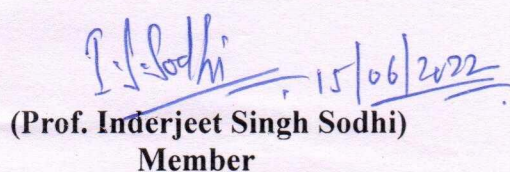 I.S.Sodhi 15/06/2022
(Prof. Inderjeet Singh Sodhi)
Member